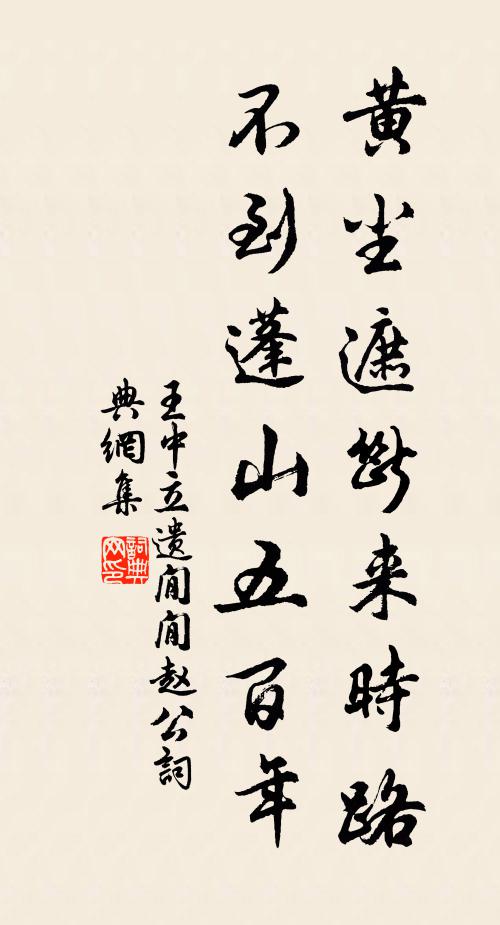 黄尘遮断来時路
不到蓬山五百年
王中立遺閒閒赵公詞
典網集
詞典网印